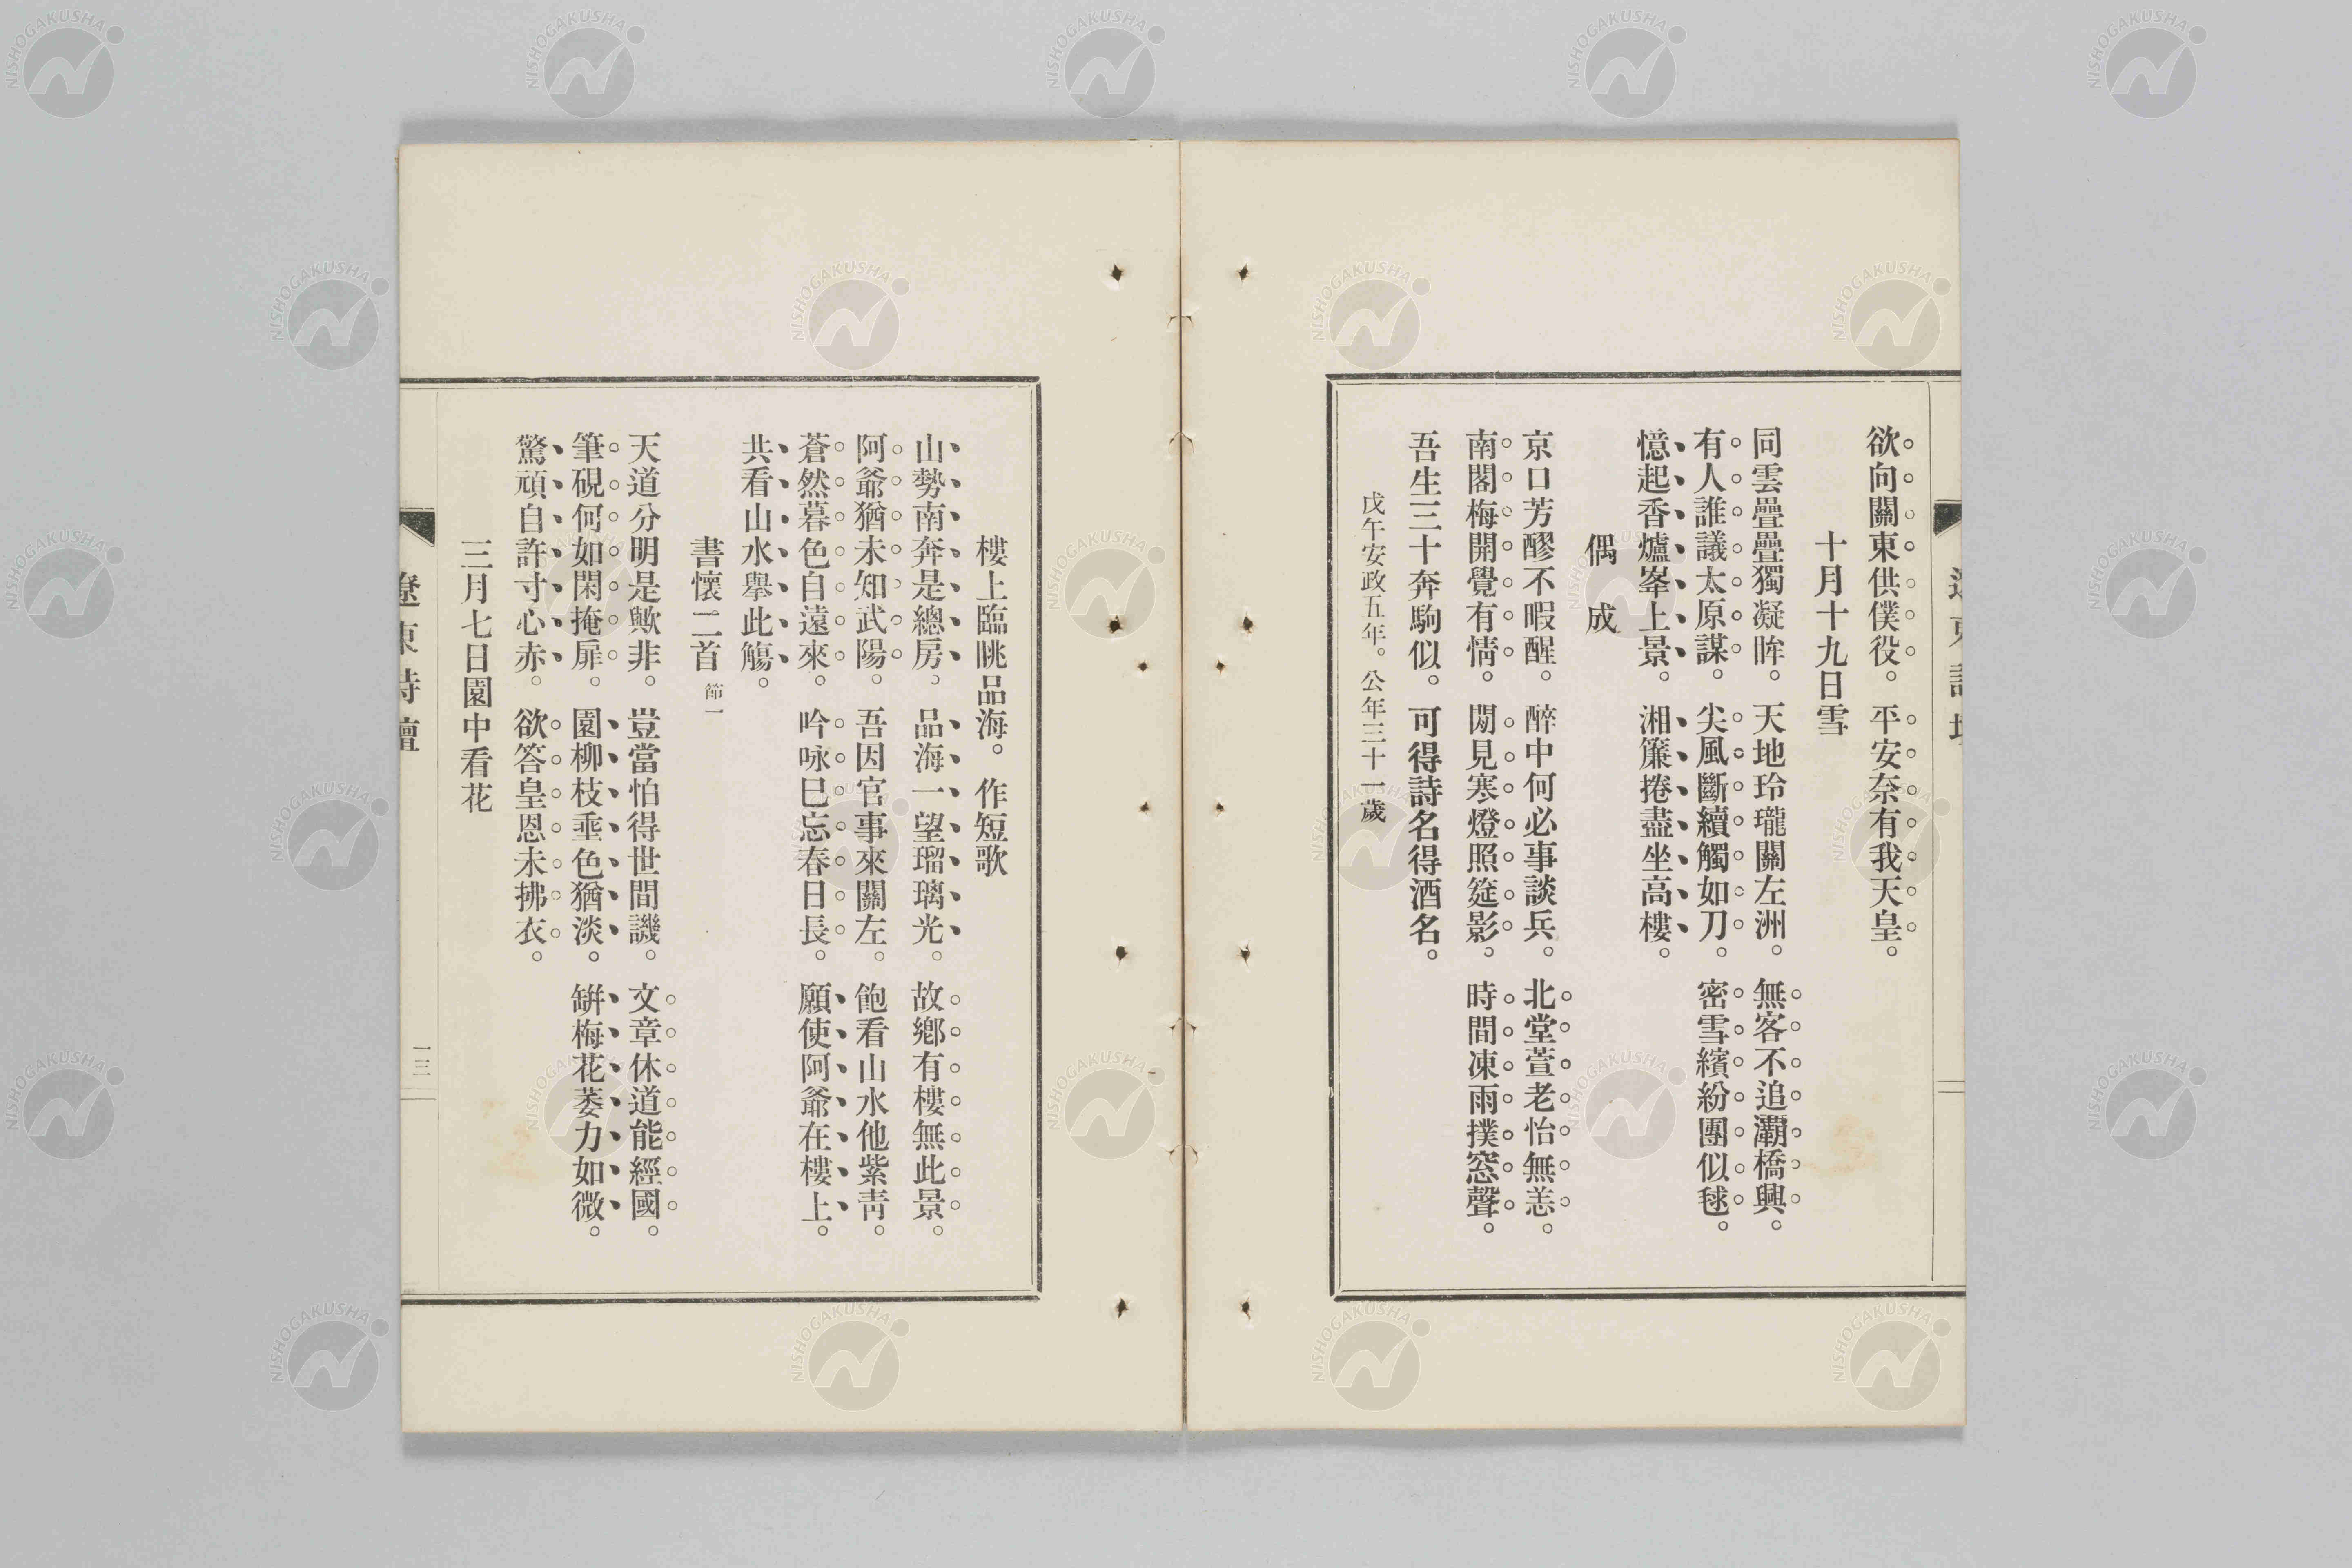 欲向關東供僕役。平安奈有我天皇。
十月十九日雪
同雲疊疊獨凝眸。天地玲瓏關左洲。無客不追灞橋興。
有人誰議太原謀。尖風斷續觸如刀。密雪繽紛團似毬。
憶起香爐峯上景。湘簾捲盡坐高樓。
偶成
京口芳醪不暇醒。醉中何必事談兵。北堂萱老怡無恙。
南閣梅開覺有情。閒見寒燈照筵影。時間凍雨撲窓聲。
吾生三十奔駒似。可得詩名得酒名。
戊午安政五年。公年三十一歲
樓上臨眺品海。作短歌
山勢南奔是總房。品海一望瑠璃光。故鄕有樓無此景。
阿爺猶未知武陽。吾因官事來關左。飽看山水他紫靑。
蒼然暮色自遠來。吟咏巳忘春日長。願使阿爺在樓上。
共看山水擧此觴。
書懷二首 節一
天道分明是歟非。豈當怕得世間譏。文章休道能經國。
筆硯何如閑掩扉。園柳枝垂色猶淡。缾梅花萎力如微。
驚頑自許寸心赤。欲答皇恩未拂衣。
三月七日園中看花
遼東詩壇
一三
NISHOGAKUSHA